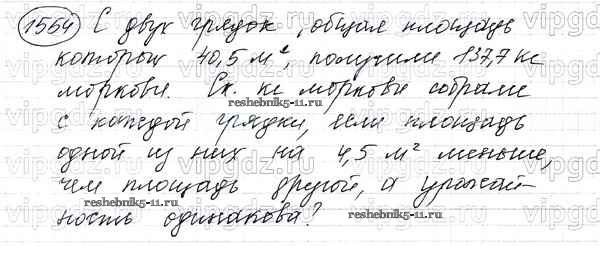 1554 С двух грядок, общая площадь
которых 40,5 м², получили 137,7 кг
моркови. Ск. кг моркови собрали
reshebnik5-11.ru
с каждой грядки, если площадь
одной из них на 4,5 м² меньше,
чем площадь другой, а урожай-
reshebnik5-11.ru
ность одинакова?
vipgdz.ru